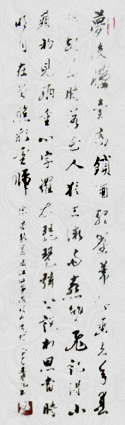 夢後樓臺高鎖酒醒簾幕低垂去年春
恨却來時落花人獨立微雨燕雙飛記得小
蘋初見兩重心字羅衣琵琶弦上説相思當時
明月在曾照彩雲歸